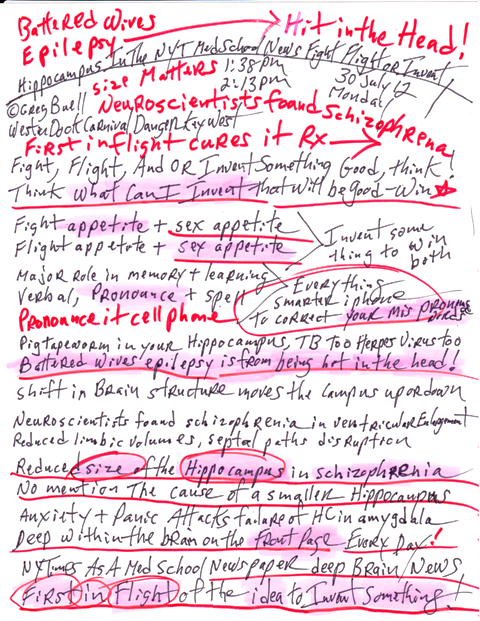 Battered Wives
Epilepsy → Hit in the Head!
Hippocampus In The NYT Med School News Fight Flight or Invent
Size Matters 1:38pm 30 July 12
2:13pm Monday
© Greg Buell Neuroscientists found Schizophrenia
Wester Dock Carnival Danger Key West
First inflight cures it Rx →
Fight, Flight, And OR Invent Something Good, think!
Think what Can I Invent that will be good-win
Fight appetite + sex appetite
Flight appetite + sex appetite
Invent some
thing to win
both
Major Role in memory + learning
Verbal, Pronounce + spell
Pronounce it cell phone
Everything
smarter iphone
to correct your mis pronounce
Pig tapeworm in your Hippocampus, TB too Herpes Virus too
Battered wives' epilepsy is from being hot in the head!
Shift in Brain structure moves the campus up or down
Neuroscientists found schizophrenia in ventricular Enlargement
Reduced limbic volumes, septal paths disruption
Reduced size of the Hippocampus in schizophrenia
No mention The cause of a smaller Hippocampus
Anxiety + Panic Attacks failure of HC in amygdala
Deep within the brain on the front page Every Day!
NYTimes As A Med School News paper deep Brain News,
First in Flight of the idea to Invent Something!